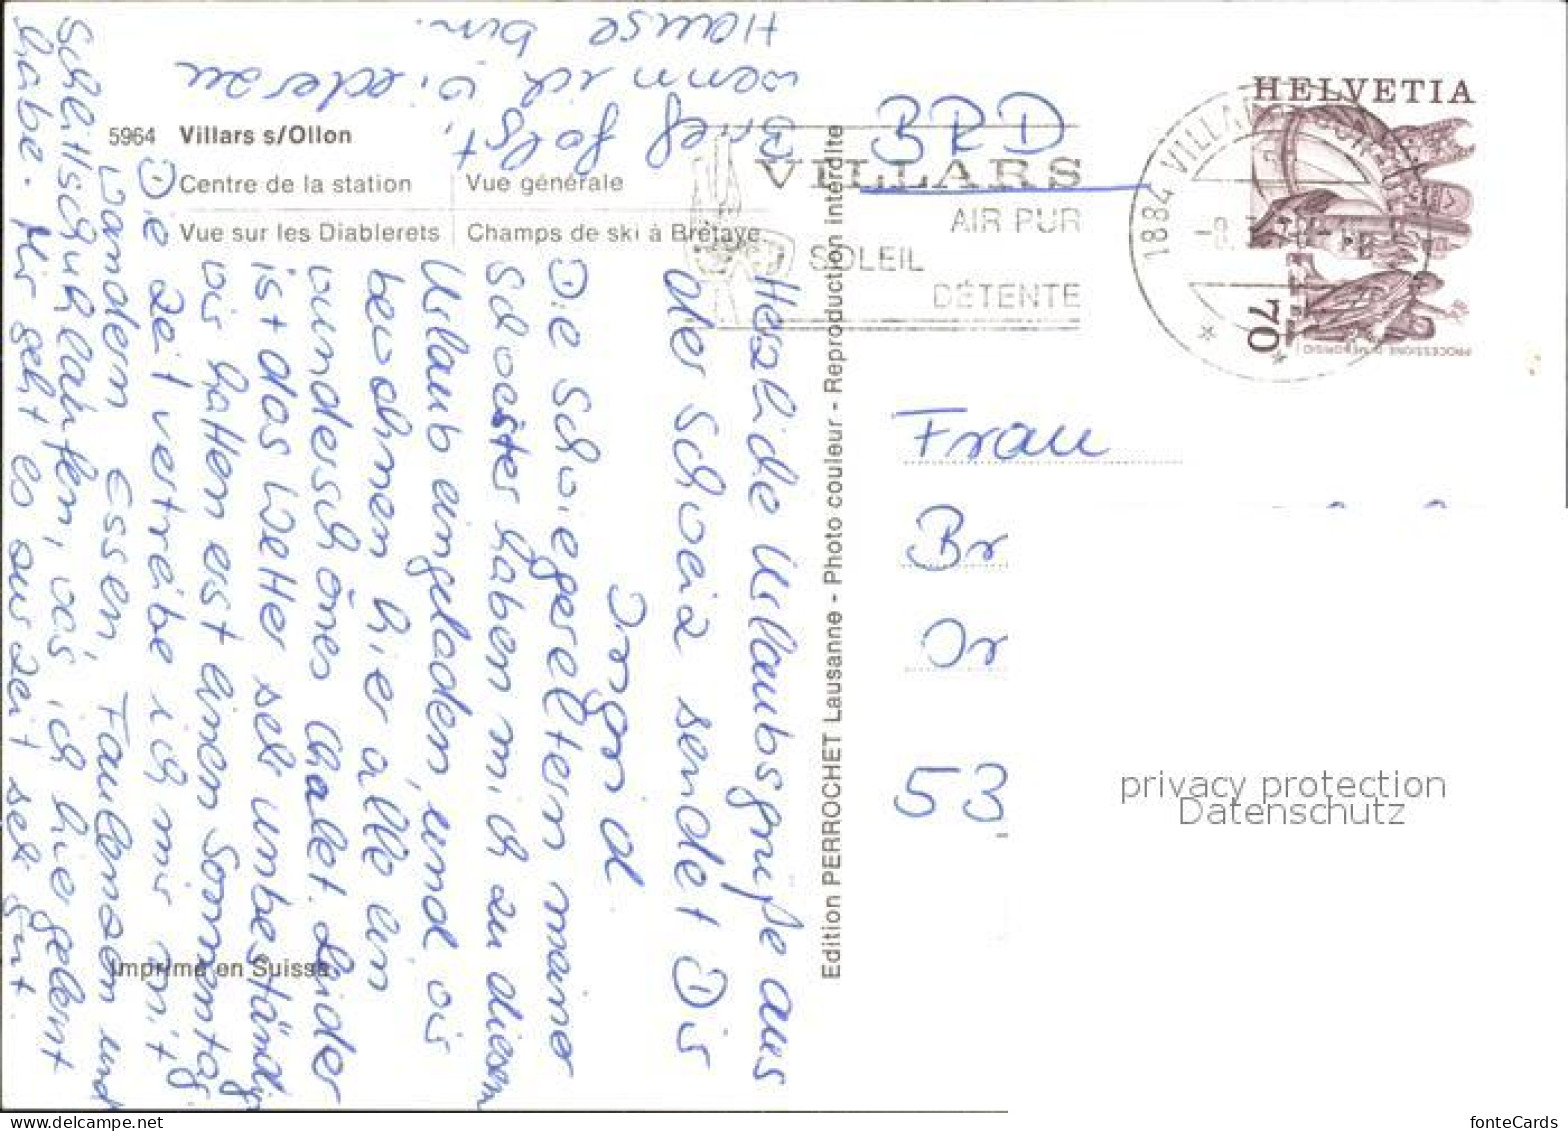 5964 Villars s/Ollon
Centre de la station Vue générale
Vue sur les Diablerets Champs de ski à Bretaye
Imprimé en Suisse
Edition PERROCHET Lausanne - Photo couleur - Reproduction interdite
VILLARS
AIR PUR
SOLEIL
DÉTENTE
1884 VILLARS
HELVETIA
70
PROCESSIONE DI MENDRISIO
Herzliche Urlaubsgrüße aus
der Schweiz sendet Dir
Ingrid
Die Schwiegereltern meiner
Schwester haben mich zu diesem
Urlaub eingeladen, und wir
bewohnen hier alle ein
wunderschönes Chalet. Leider
ist das Wetter sehr unbeständig
wir hatten erst einen Sonnentag
Die Zeit vertreibe ich mir mit
wandern, Essen, Faulenzen und
Schlittschuhlaufen, was ich hier gelernt
habe. Mir geht es zur Zeit sehr gut.
Brief folgt,
wenn ich wieder zu
Hause bin.
BRD
Frau
Br
Or
53
privacy protection
Datenschutz
fonteCards